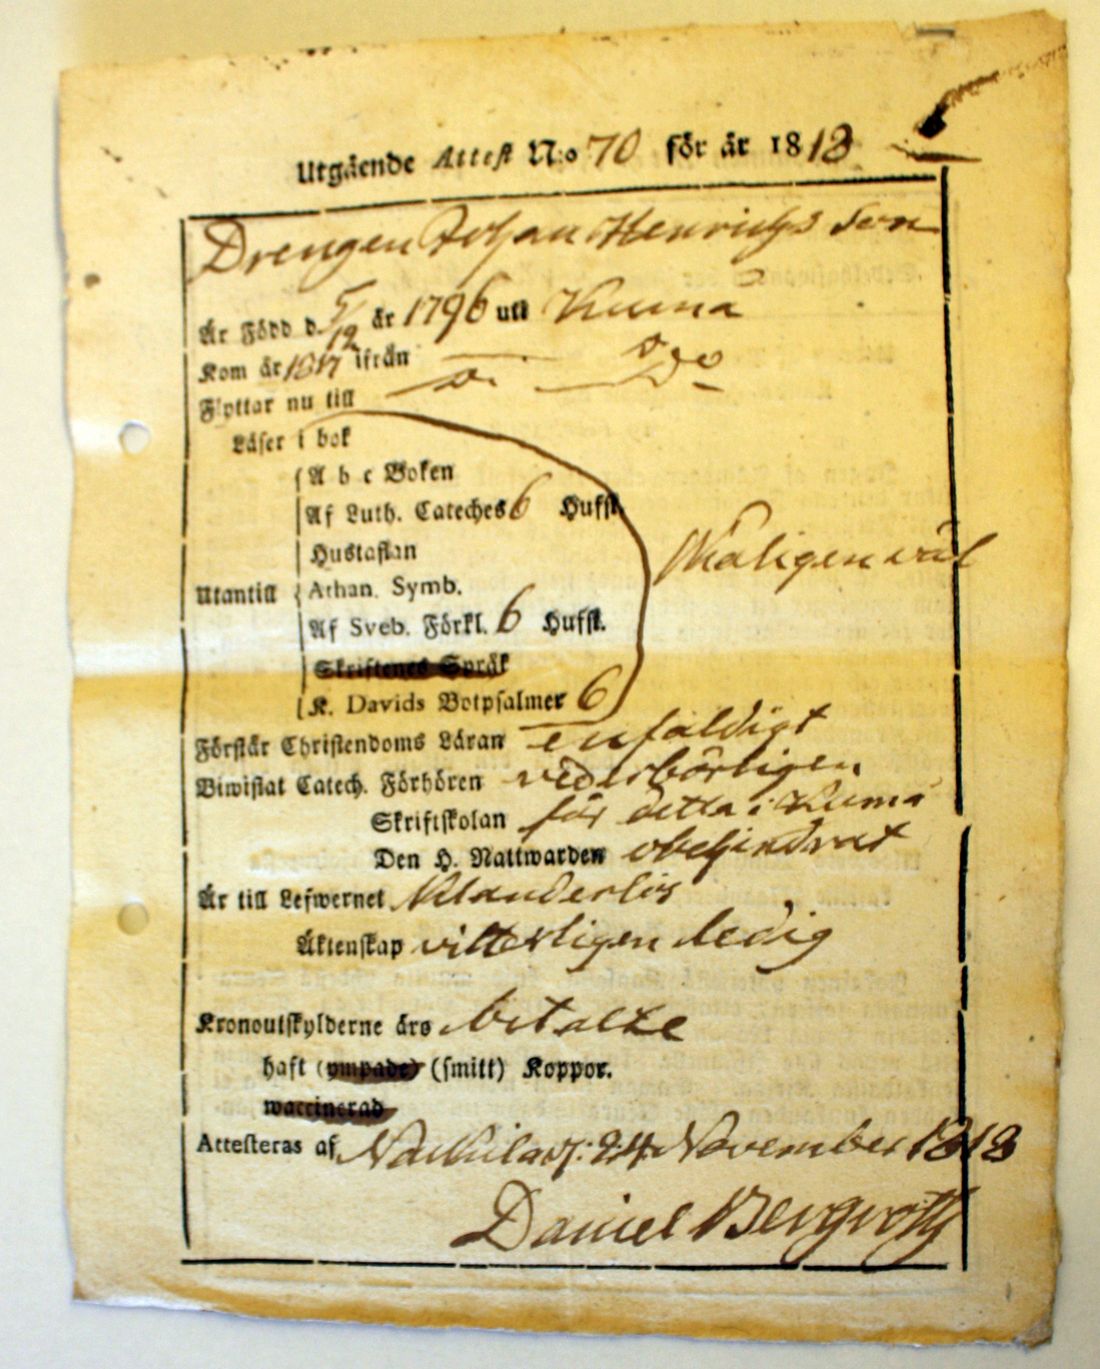 Utgående Attest N:o 70 för år 1818
Drengen Johan Henrichs Son
Är Född d. 5/12 år 1796 uti Kumå
Kom år 1817 ifrån — do
Flyttar nu till — do
Läser i bok
A b c Boken
Af Luth. Cateches 6 Hufst.
Hustaflan
Utantill Athan. Symb. Wäligen väl
Af Sveb. Förkl. 6 Hufst.
Skriftenes Språk
K. Davids Botpsalmer 6
Förstår Christendoms Läran enfäldigt
Biwistat Catech. Förhören vederbörligen
Skriftskolan för detta i Kumå
Den H. Nattwarden obehindrat
Är till Lefwernet Oklanderlös
Äktenskap vitterligen ledig
Kronoutskylderne äro betalte
haft (ympade) (smitt) Koppor.
waccinerad
Attesteras af Nackila d. 24 November 1818
Daniel Bergroth